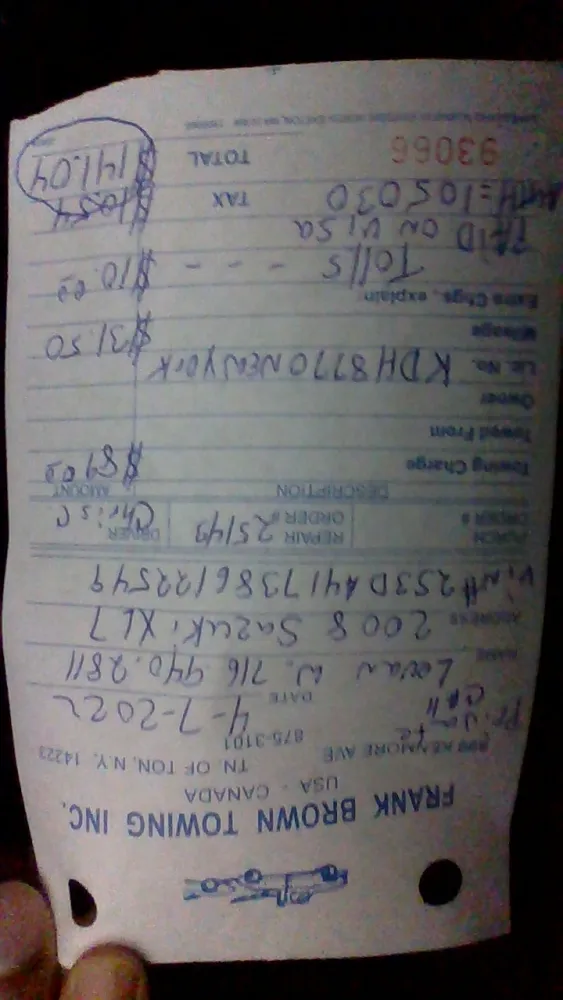 FRANK BROWN TOWING INC.
USA - CANADA
KENMORE AVE TN. OF TON, N.Y. 14223
875-3101
Private Call
DATE 4-7-2022
NAME Levan W. 716 940.2811
ADDRESS 2008 Suzuki XL7
Vin# 2S3DA417386122549
PURCH ORDER # REPAIR ORDER # 25149 DRIVER Chris C
DESCRIPTION AMOUNT
Towing Charge $89.00
Towed From
Owner
Lic. No. KDH8770 NEW YORK
Mileage $31.50
Extra Chgs., explain:
Tolls - - - - $10.00
PAID ON Visa
AUTH=105030 TAX $10.54
93066 TOTAL $141.04